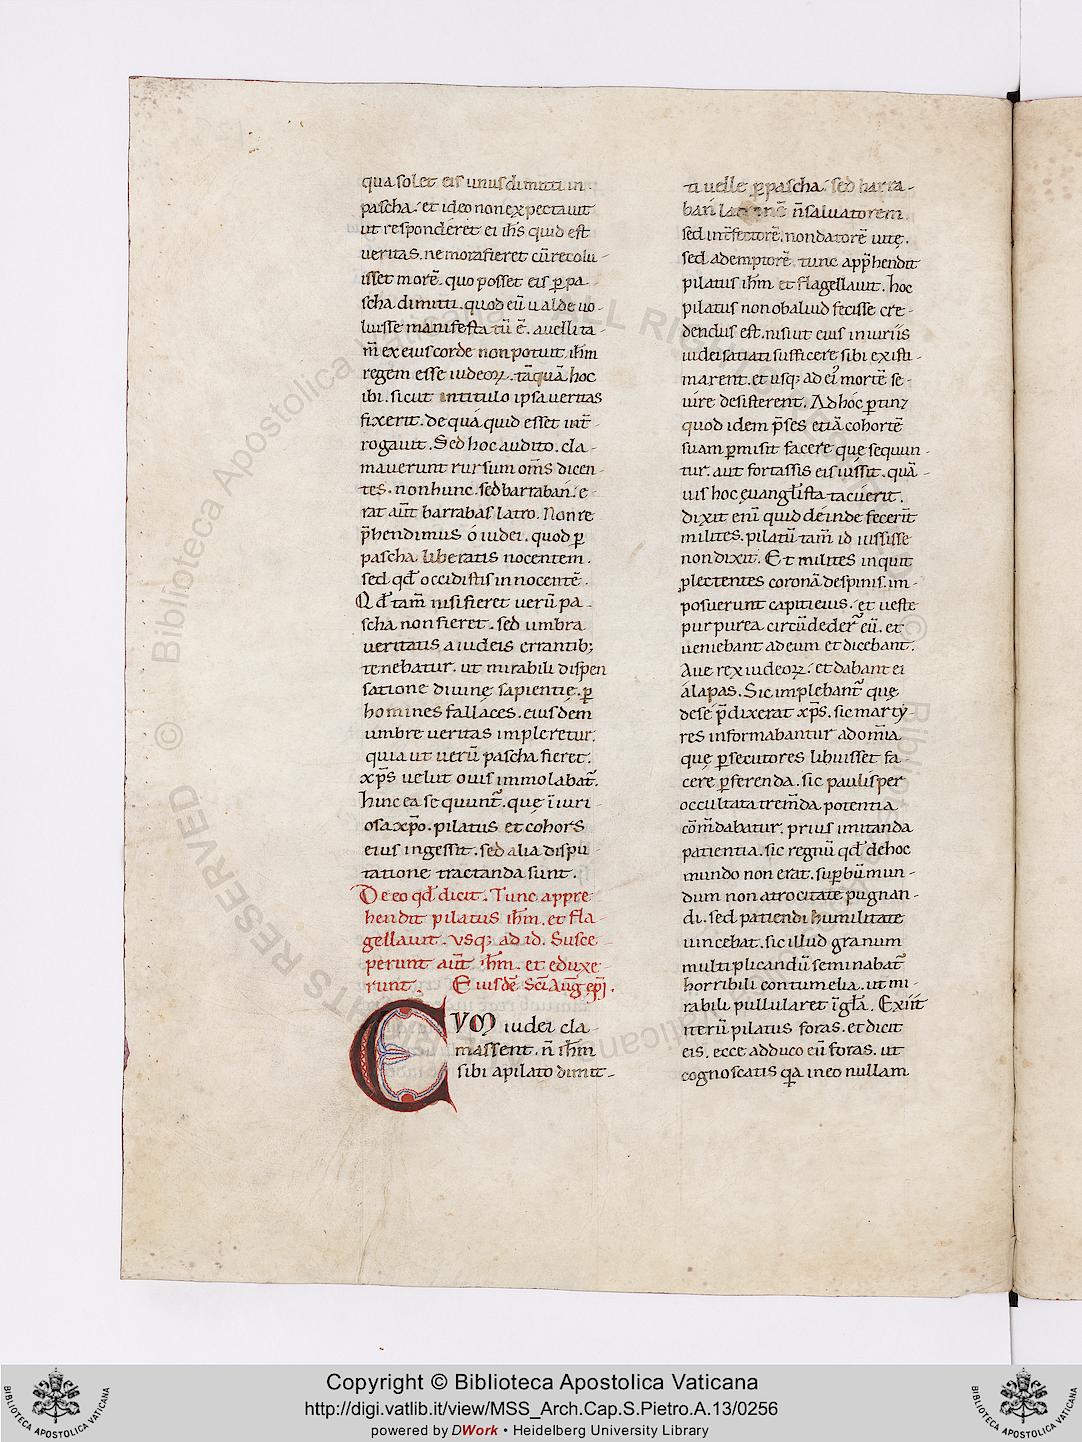 qua solet eis unus dimitti in
pascha. et ideo non expectauit
ut responderet ei ihs̄ quid est
ueritas. ne mora fieret cū recolu-
isset morē. quo posset eis ꝑ pa-
scha dimitti. quod eū ualde uo-
luisse manifestatū ē. auelli ta-
m̄ ex eius corde non potuit ihm̄
regem esse iudeoꝝ. tāquā hoc
ibi. sicut intitulo ipsa ueritas
fixerit. de qua quid esset int̄-
rogauit. Sed hoc audito. cla-
mauerunt rursum om̄s dicen-
tes. non hunc. sed barraban. e-
rat aut̄ barrabas latro. Non re
p̄hendimus o iudei. quod ꝑ
pascha liberatis nocentem.
sed qd̄ occidistis innocentē.
Qd̄ tam̄ nisi fieret uerū pa-
scha non fieret. sed umbra
ueritatis a iudeis errantib;
tenebatur. ut mirabili dispen
satione diuinę sapientię. ꝑ
homines fallaces. eiusdem
umbre ueritas impleretur.
quia ut uerū pascha fieret.
xp̄s uelut ouis immolabat̄.
Hinc ea sequunt̄. quę iniuri-
osa xp̄o. pilatus et cohors
eius ingessit. sed alia dispu-
tatione tractanda sunt.
De eo qd̄ dicit. Tunc appre-
hendit pilatus ihm̄. et fla-
gellauit. vsq; ad id. Susce-
perunt aut̄ ihm̄. et eduxe-
runt. Eiusdē Sc̄i Auḡ ep̄i.
CVM iudei cla-
massent. n̄ ihm̄
sibi a pilato dimit-
ti uelle ꝑ pascha. sed barra-
ban n̄ saluatorem
sed int̄fectorē. non datorē uitę.
sed ademptorē. tunc app̄hendit
pilatus ihm̄ et flagellauit. hoc
pilatus non ob aliud fecisse cre-
dendus est. nisi ut eius iniuriis
iudei satiati sufficere sibi existi-
marent. et usq; ad ei᾿ mortē se-
uire desisterent. Ad hoc ꝑtin&
quod idem p̄ses etiā cohortē
suam ꝑmisit facere quę sequun-
tur. aut fortassis eis iussit. quā-
uis hoc ęuangl̄ista tacuerit.
dixit enī quid deinde fecerīt
milites. pilatū tam̄ id iussisse
non dixit. Et milites inquit
plectentes coronā despinis. im-
posuerunt capiti eius. et ueste
purpurea circūdeder̄ eū. et
ueniebant ad eum et dicebant.
Aue rex iudeoꝝ. et dabant ei
alapas. Sic implebant̄ quę
de se p̄dixerat xp̄s. sic marty-
res informabantur ad om̄ia
quę ꝑsecutores libuisset fa-
cere ꝑferenda. sic paulisper
occultata trem̄da potentia
cōm̄dabatur. prius imitanda
patientia. sic regnū qd̄ de hoc
mundo non erat. suꝑbum mun-
dum non atrocitate pugnan-
di. sed patiendi humilitate
uincebat. sic illud granum
multiplicandū seminabat̄
horribili contumelia. ut mi-
rabili pullularet īgl̄a. Exiit
iterū pilatus foras. et dicit
eis. ecce adduco eū foras. ut
cognoscatis qa in eo nullam
© Biblioteca Apostolica Vaticana ALL RIGHTS RESERVED
Copyright © Biblioteca Apostolica Vaticana
http://digi.vatlib.it/view/MSS_Arch.Cap.S.Pietro.A.13/0256
powered by DWork • Heidelberg University Library
BIBLIOTECA APOSTOLICA VATICANA
BIBLIOTECA APOSTOLICA VATICANA